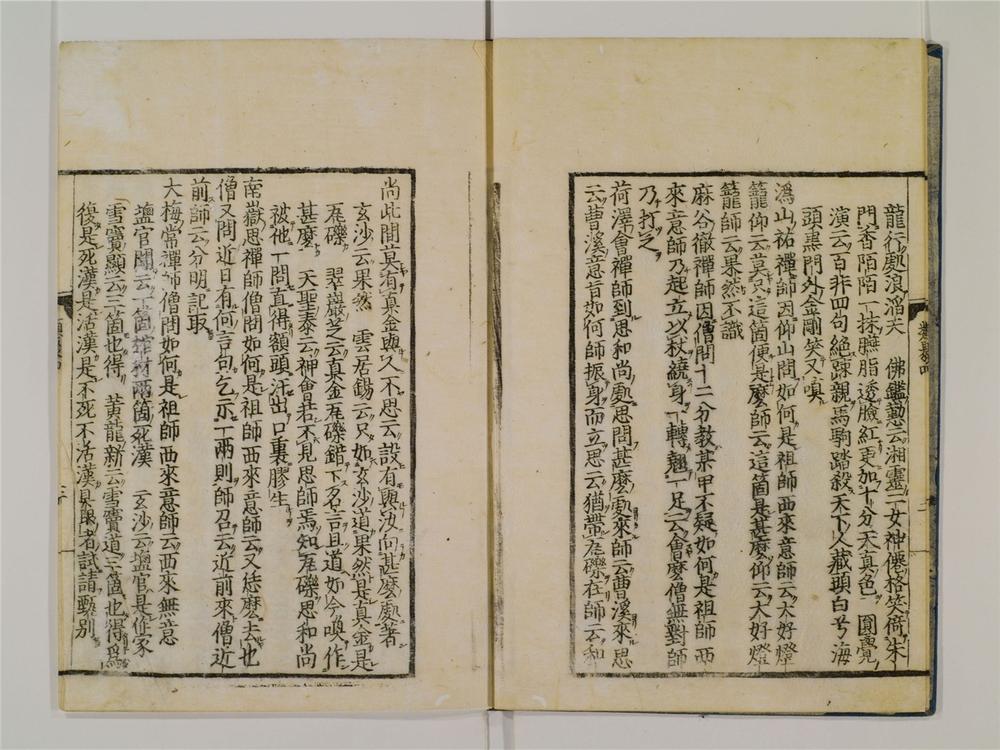 龍行處浪滔天　佛鑑懃云湘靈二女神僊格笑倚朱
門香陌陌一抹臙脂透臉紅更加十分天真色　圓覺
演云百非四句絕踈親馬駒踏殺天下人藏頭白兮海
頭黒門外金剛笑又嗔
溈山祐禪師因仰山問如何是祖師西來意師云大好燈
籠仰云莫只這箇便是麼師云這箇是甚麼仰云大好燈
籠師云果然不識
麻谷徹禪師因僧問十二分教某甲不疑如何是祖師西
來意師乃起立以杖繞身一轉翹一足云會麼僧無對師
乃打之
荷澤會禪師到思和尚處思問甚麼處來師云曹溪來思
云曹溪意旨如何師振身而立思云猶帶瓦礫在師云和
尚此間莫有真金與人不思云設有與汝向甚麼處著
玄沙云果然　雲居錫云只如玄沙道果然是真金是
瓦礫　翠巖芝云真金瓦礫錯下名言且道如今喚作
甚麼　天聖泰云神會若不見思師焉知瓦礫思和尚
被他一問直得額頭汗出口裏膠生
南嶽思禪師僧問如何是祖師西來意師云又恁麼去也
僧又問近日有何言句乞示一兩則師召云近前來僧近
前師云分明記取
大梅常禪師僧問如何是祖師西來意師云西來無意
鹽官聞云一箇棺材兩箇死漢　玄沙云鹽官是作家
雪竇顯云三箇也得　黃龍新云雪竇道三箇也得為
復是死漢是活漢是不死不活漢具眼者試請甄別